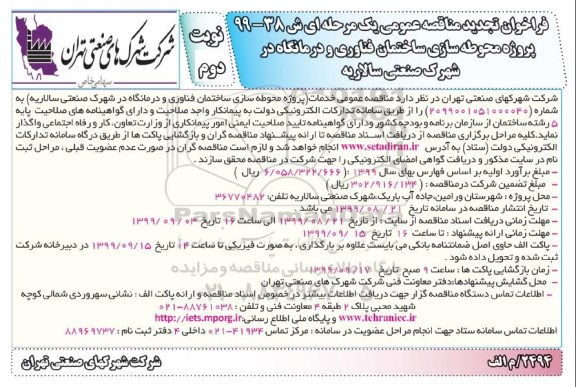 فراخوان تجدید مناقصه عمومی یک مرحله ای ش ۳۸-۹۹
پروژه محوطه سازی ساختمان فناوری و درمانگاه در
شهرک صنعتی سالاریه
نوبت
دوم
شرکت شهرکهای صنعتی تهران
سهامی خاص
شرکت شهرکهای صنعتی تهران در نظر دارد مناقصه عمومی خدمات (پروژه محوطه سازی ساختمان فناوری و درمانگاه در شهرک صنعتی سالاریه) به
شماره (۲۰۹۹۰۰۱۰۵۱۰۰۰۰۴۰) را از طریق سامانه تدارکات الکترونیکی دولت به پیمانکار واجد صلاحیت و دارای گواهینامه های صلاحیت پایه
۵ رشته ساختمان از سازمان برنامه و بودجه کشور و دارای گواهینامه تایید صلاحیت ایمنی امور پیمانکاری از وزارت تعاون، کار و رفاه اجتماعی واگذار
نماید. کلیه مراحل برگزاری مناقصه از دریافت اسناد مناقصه تا ارائه پیشنهاد مناقصه گران و بازگشایی پاکت ها از طریق درگاه سامانه تدارکات
الکترونیکی دولت (ستاد) به آدرس www.setadiran.ir انجام خواهد شد و لازم است مناقصه گران در صورت عدم عضویت قبلی، مراحل ثبت
نام در سایت مذکور و دریافت گواهی امضای الکترونیکی را جهت شرکت در مناقصه محقق سازند.
- مبلغ برآورد اولیه بر اساس فهارس بهای سال ۱۳۹۹: (۶/۰۵۸/۳۲۲/۶۶۶ ریال)
- مبلغ تضمین شرکت درمناقصه: (۳۰۲/۹۱۶/۱۳۴ ریال)
محل پروژه: شهرستان ورامین-جاده آب باریک-شهرک صنعتی سالاریه تلفن: ۳۶۷۷۰۴۸۲
- تاریخ انتشار مناقصه در سامانه تاریخ ۱۳۹۹/۰۸/۲۱ می باشد.
- مهلت زمانی دریافت اسناد مناقصه از سایت: از تاریخ ۱۳۹۹/۰۸/۲۱ الی ساعت ۱۶ تاریخ ۱۳۹۹/۰۹/۰۳
- مهلت زمانی ارائه پیشنهاد: تا ساعت ۱۶ تاریخ ۱۳۹۹/۰۹/۱۵
- پاکت الف حاوی اصل ضمانتنامه بانکی می بایست علاوه بر بارگذاری، به صورت فیزیکی تا ساعت ۱۴ تاریخ ۱۳۹۹/۰۹/۱۵ در دبیرخانه شرکت
ثبت شده و تحویل داده شود.
- زمان بازگشایی پاکت ها: ساعت ۹ صبح تاریخ ۱۳۹۹/۰۹/۱۷
- محل گشایش پیشنهادها: دفتر معاونت فنی شرکت شهرک های صنعتی تهران
- اطلاعات تماس دستگاه مناقصه گزار جهت دریافت اطلاعات بیشتر درخصوص اسناد مناقصه و ارائه پاکت الف: نشانی سهروردی شمالی کوچه
شهید محبی پلاک ۲ طبقه ۴ معاونت فنی و تلفن: ۰۲۱-۸۸۷۶۱۰۳۸
www.tehraniec.ir و پایگاه ملی اطلاع رسانی: http://iets.mporg.ir
اطلاعات تماس سامانه ستاد جهت انجام مراحل عضویت در سامانه: مرکز تماس ۴۱۹۳۴-۰۲۱ داخلی ۴ دفتر ثبت نام: ۸۸۹۶۹۷۳۷
۲۴۹۴/م الف
شرکت شهرکهای صنعتی تهران